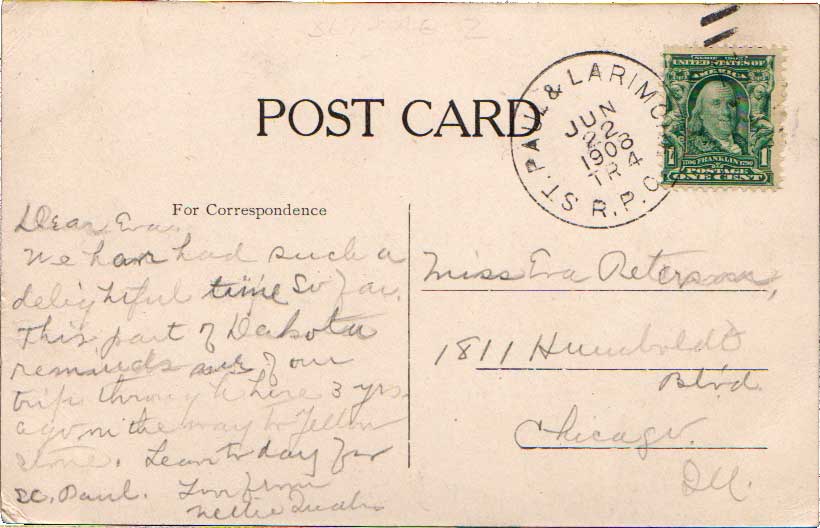 POST CARD
ST. PAUL & LARIMO
JUN
22
1908
TR 4
R.P.O.
SERIES 1902
UNITED STATES OF
AMERICA
1 1
1706 FRANKLIN 1790
POSTAGE
ONE CENT
For Correspondence
Dear Eva.
We have had such a
delightful time so far.
This part of Dakota
reminds me of our
trip through here 3 yrs.
ago on the way to Yellow
stone. Leave to day for
St. Paul. Love from
Nettie
Miss Eva Peterson,
1811 Humboldt
Blvd.
Chicago.
Ill.